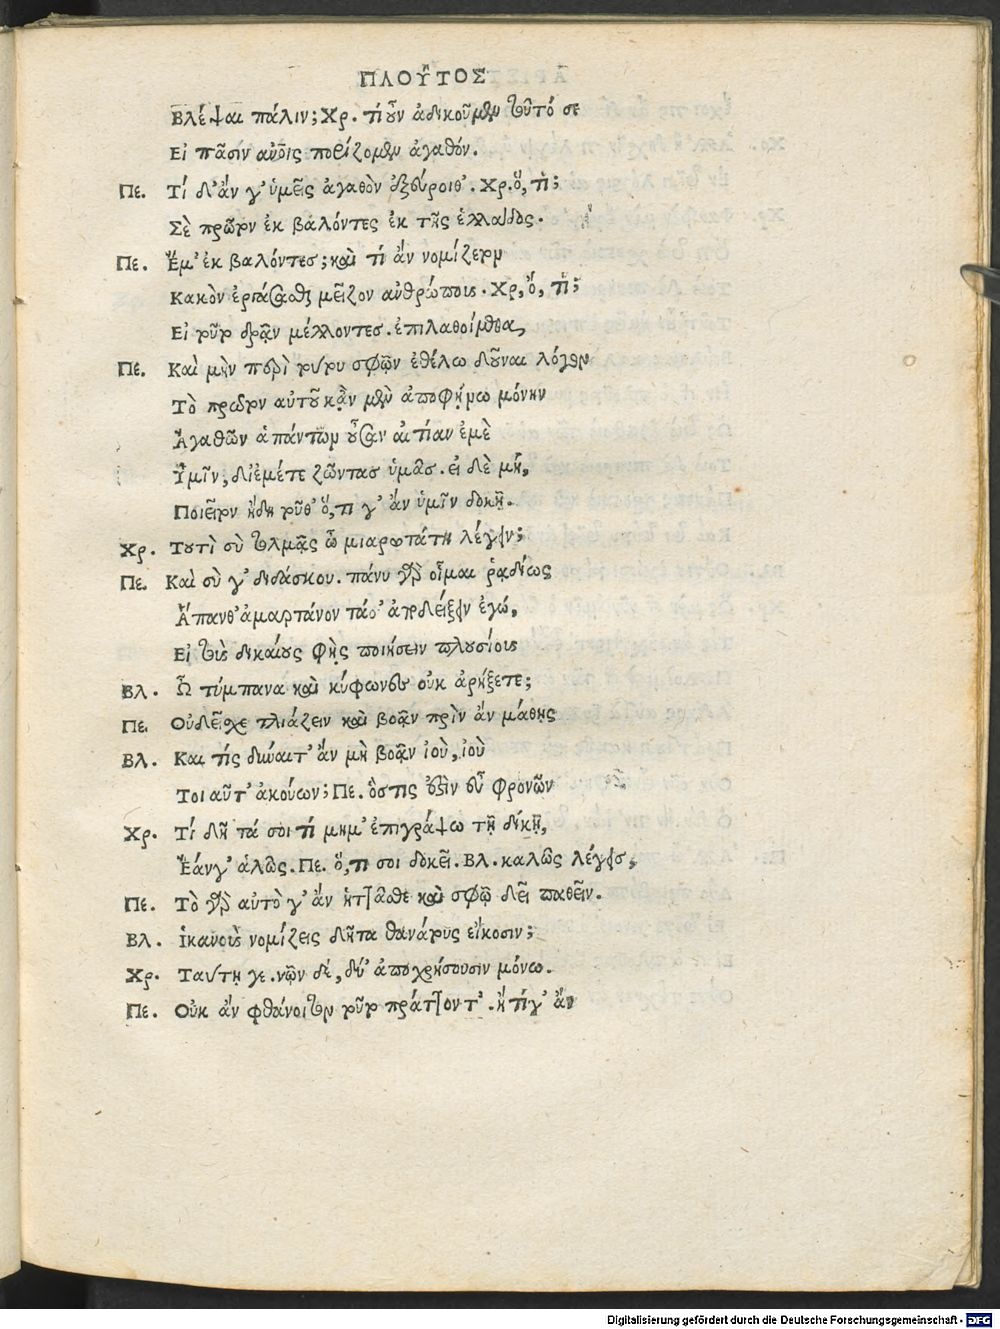 ΠΛΟΥ͂ΤΟΣ
Βλέψαι πάλιν; Χρ. τί οὖν ἀδικοῦμεν τοῦτό σε
Εἰ πᾶσιν ἀνθρώποις πορίζομεν ἀγαθόν.
Πε. Τί δ' ἄν γ' ὑμεῖς ἀγαθὸν ἐξεύροιθ'. Χρ. ὅ, τι;
Σὲ πρῶτον ἐκ βαλόντες ἐκ τῆς ἑλλάδος.
Πε. Ἔμ' ἐκ βαλόντες; καὶ τί ἄν νομίζετον
Κακὸν ἐργάσασθαι μεῖζον ἀνθρώποις. Χρ, ὅ, τι;
Εἰ τοῦτο δρᾶν μέλλοντες. ἐπιλαθοίμεθα,
Πε. Καὶ μὴν περὶ τούτου σφῶν ἐθέλω δοῦναι λόγον
Τὸ πρῶτον αὐτοῦ κᾂν μὲν ἀποφήνω μόνην
Ἀγαθῶν ἁπάντων οὖσαν αἰτίαν ἐμὲ
Ὑμῖν, δι' ἐμέ τε ζῶντας ὑμᾶς. εἰ δὲ μὴ,
Ποιεῖτον ἤδη τοῦθ' ὅ, τι γ' ἄν ὑμῖν δοκῇ.
Χρ. Τουτὶ σὺ τολμᾷς ὦ μιαρωτάτη λέγειν;
Πε. Καὶ σὺ γ' διδάσκου. πάνυ γὰρ οἶμαι ῥᾳδίως
Ἅπανθ' ἁμαρτάνοντά σ' ἀποδείξειν ἐγώ,
Εἰ τοὺς δικαίους φῂς ποιήσειν πλουσίους
Βλ. Ὦ τύμπανα καὶ κύφωνες οὐκ ἀρήξετε;
Πε. Οὐ δεῖ σχετλιάζειν καὶ βοᾶν πρὶν ἄν μάθῃς
Βλ. Και τίς δύναιτ' ἄν μὴ βοᾶν ἰοὺ, ἰοὺ
Τοιαῦτ' ἀκούων; Πε. ὅστις ἐστὶν εὖ φρονῶν
Χρ. Τί δῆτά σοι τίμημ' ἐπιγράψω τῇ δίκῃ,
Ἐάνγ' ἁλῷς. Πε. ὅ, τι σοι δοκεῖ. Βλ. καλῶς λέγεις,
Πε. Τὸ γὰρ αὐτὸ γ' ἄν ἡττᾶσθε καὶ σφῷ δεῖ παθεῖν.
Βλ. Ἱκανοὺς νομίζεις δῆτα θανάτους εἴκοσιν;
Χρ. Ταύτῃ γε. νῷν δέ, δύ' ἀποχρήσουσιν μόνω.
Πε. Οὐκ ἄν φθάνοιτον τοῦτο πράττοντ'. ἢ τί γ' ἄν
Digitalisierung gefördert durch die Deutsche Forschungsgemeinschaft - DFG